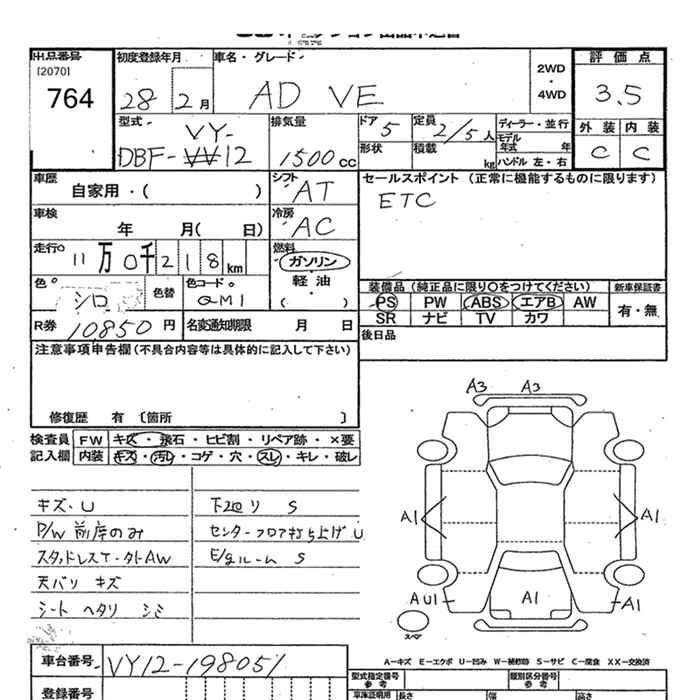 出品番号
[2070]
764
初度登録年月
28 2月
車名・グレード
AD VE
2WD
4WD
評価点
3.5
外装 内装
C C
型式
VY-
DBF-VV12
排気量
1500cc
ドア 5
形状
定員 2/5人
積載 kg
ディーラー・並行
モデル年式 年
ハンドル 左・右
車歴
自家用・( )
シフト
AT
車検
年 月( 日)
冷房
AC
走行
11万0千218km
燃料
ガソリン
軽油
( )
色
シロ
色替
色コード
QM1
R券 10,850円
名変通知期限 月 日
セールスポイント(正常に機能するものに限ります)
ETC
装備品(純正品に限り〇をつけてください)
PS PW ABS エアB AW
SR ナビ TV カワ
新車保証書
有・無
後日品
注意事項申告欄(不具合内容等は具体的に記入して下さい)
修復歴 有〔箇所 〕
検査員記入欄
FW キズ・飛石・ヒビ割・リペア跡・×要
内装 キズ・汚レ・コゲ・穴・スレ・キレ・破レ
キズ・U
P/W 前席のみ
スタッドレスT・タトAW
天バリ キズ
シート ヘタリ シミ
下回り S
センターフロア打ち上げ U
E/gルーム S
A3 A3
A1 A1
AU1 A1 A1
スペア
A=キズ E=エクボ U=凹み W=補修跡 S=サビ C=腐食 XX=交換済
車台番号 VY12-198051
登録番号
型式指定番号
参考
類別区分番号
参考
車庫証明用 長さ 幅 高さ